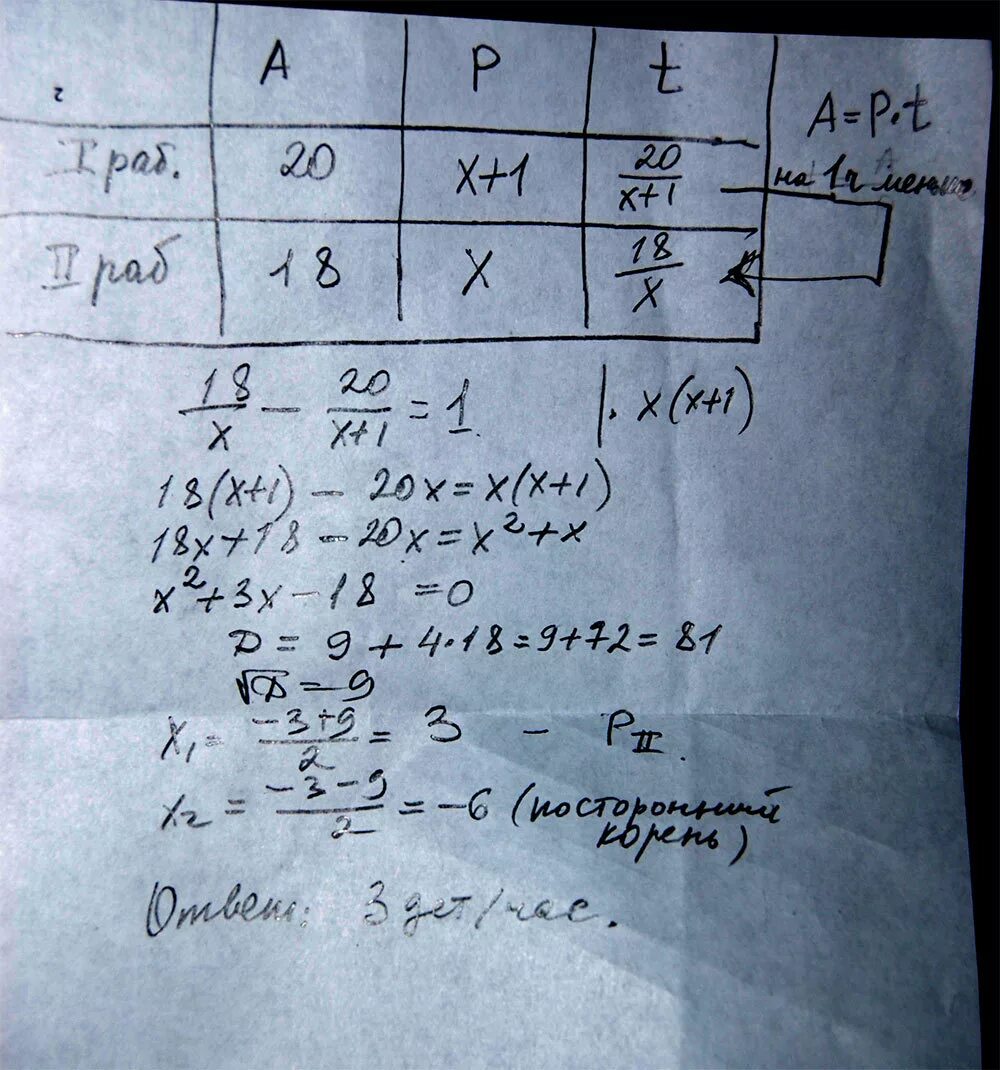 A P t
A = P·t
I раб. 20 x+1 20/(x+1) на 1ч меньше
II раб 18 x 18/x
18/x − 20/(x+1) = 1 |· x(x+1)
18(x+1) − 20x = x(x+1)
18x+18 − 20x = x²+x
x²+3x−18 = 0
D = 9 + 4·18 = 9+72 = 81
√D = 9
x₁ = (−3+9)/2 = 3 − P_II.
x₂ = (−3−9)/2 = −6 (посторонний
корень)
Ответ: 3 дет/час.